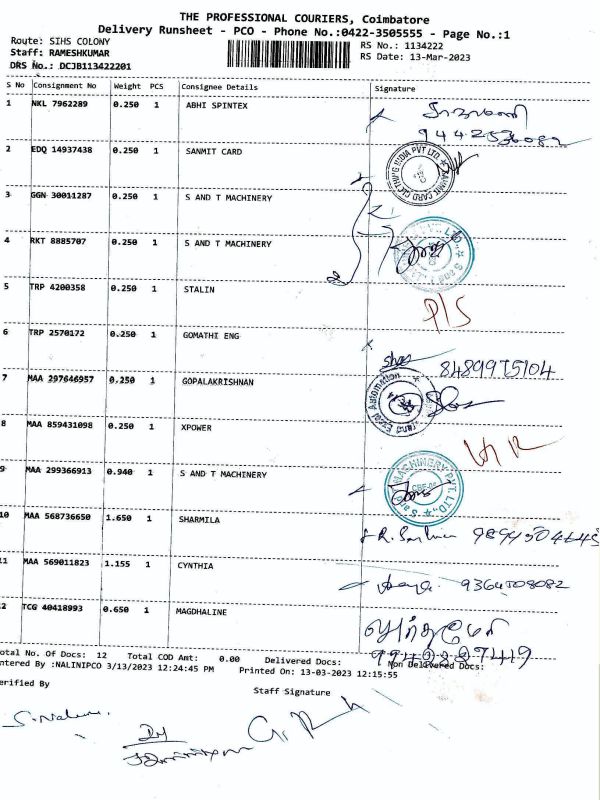 THE PROFESSIONAL COURIERS, Coimbatore
Delivery Runsheet - PCO - Phone No.:0422-3505555 - Page No.:1
Route: SIHS COLONY
Staff: RAMESHKUMAR
DRS No.: DCJB113422201
RS No.: 1134222
RS Date: 13-Mar-2023
S No Consignment No Weight PCS Consignee Details Signature
1 NKL 7962289 0.250 1 ABHI SPINTEX
2 EDQ 14937438 0.250 1 SANMIT CARD
3 GGN 30011287 0.250 1 S AND T MACHINERY
4 RKT 8885707 0.250 1 S AND T MACHINERY
5 TRP 4200358 0.250 1 STALIN
P/S
6 TRP 2570172 0.250 1 GOMATHI ENG
8489975104
7 MAA 297646957 0.250 1 GOPALAKRISHNAN
8 MAA 859431098 0.250 1 XPOWER
9 MAA 299366913 0.940 1 S AND T MACHINERY
MACHINERY PVT. LTD.
10 MAA 568736650 1.650 1 SHARMILA
11 MAA 569011823 1.155 1 CYNTHIA
9364508082
12 TCG 40418993 0.650 1 MAGDHALINE
otal No. Of Docs: 12 Total COD Amt: 0.00 Delivered Docs: Non Delivered Docs:
ntered By :NALINIPCO 3/13/2023 12:24:45 PM Printed On: 13-03-2023 12:15:55
erified By
Staff Signature